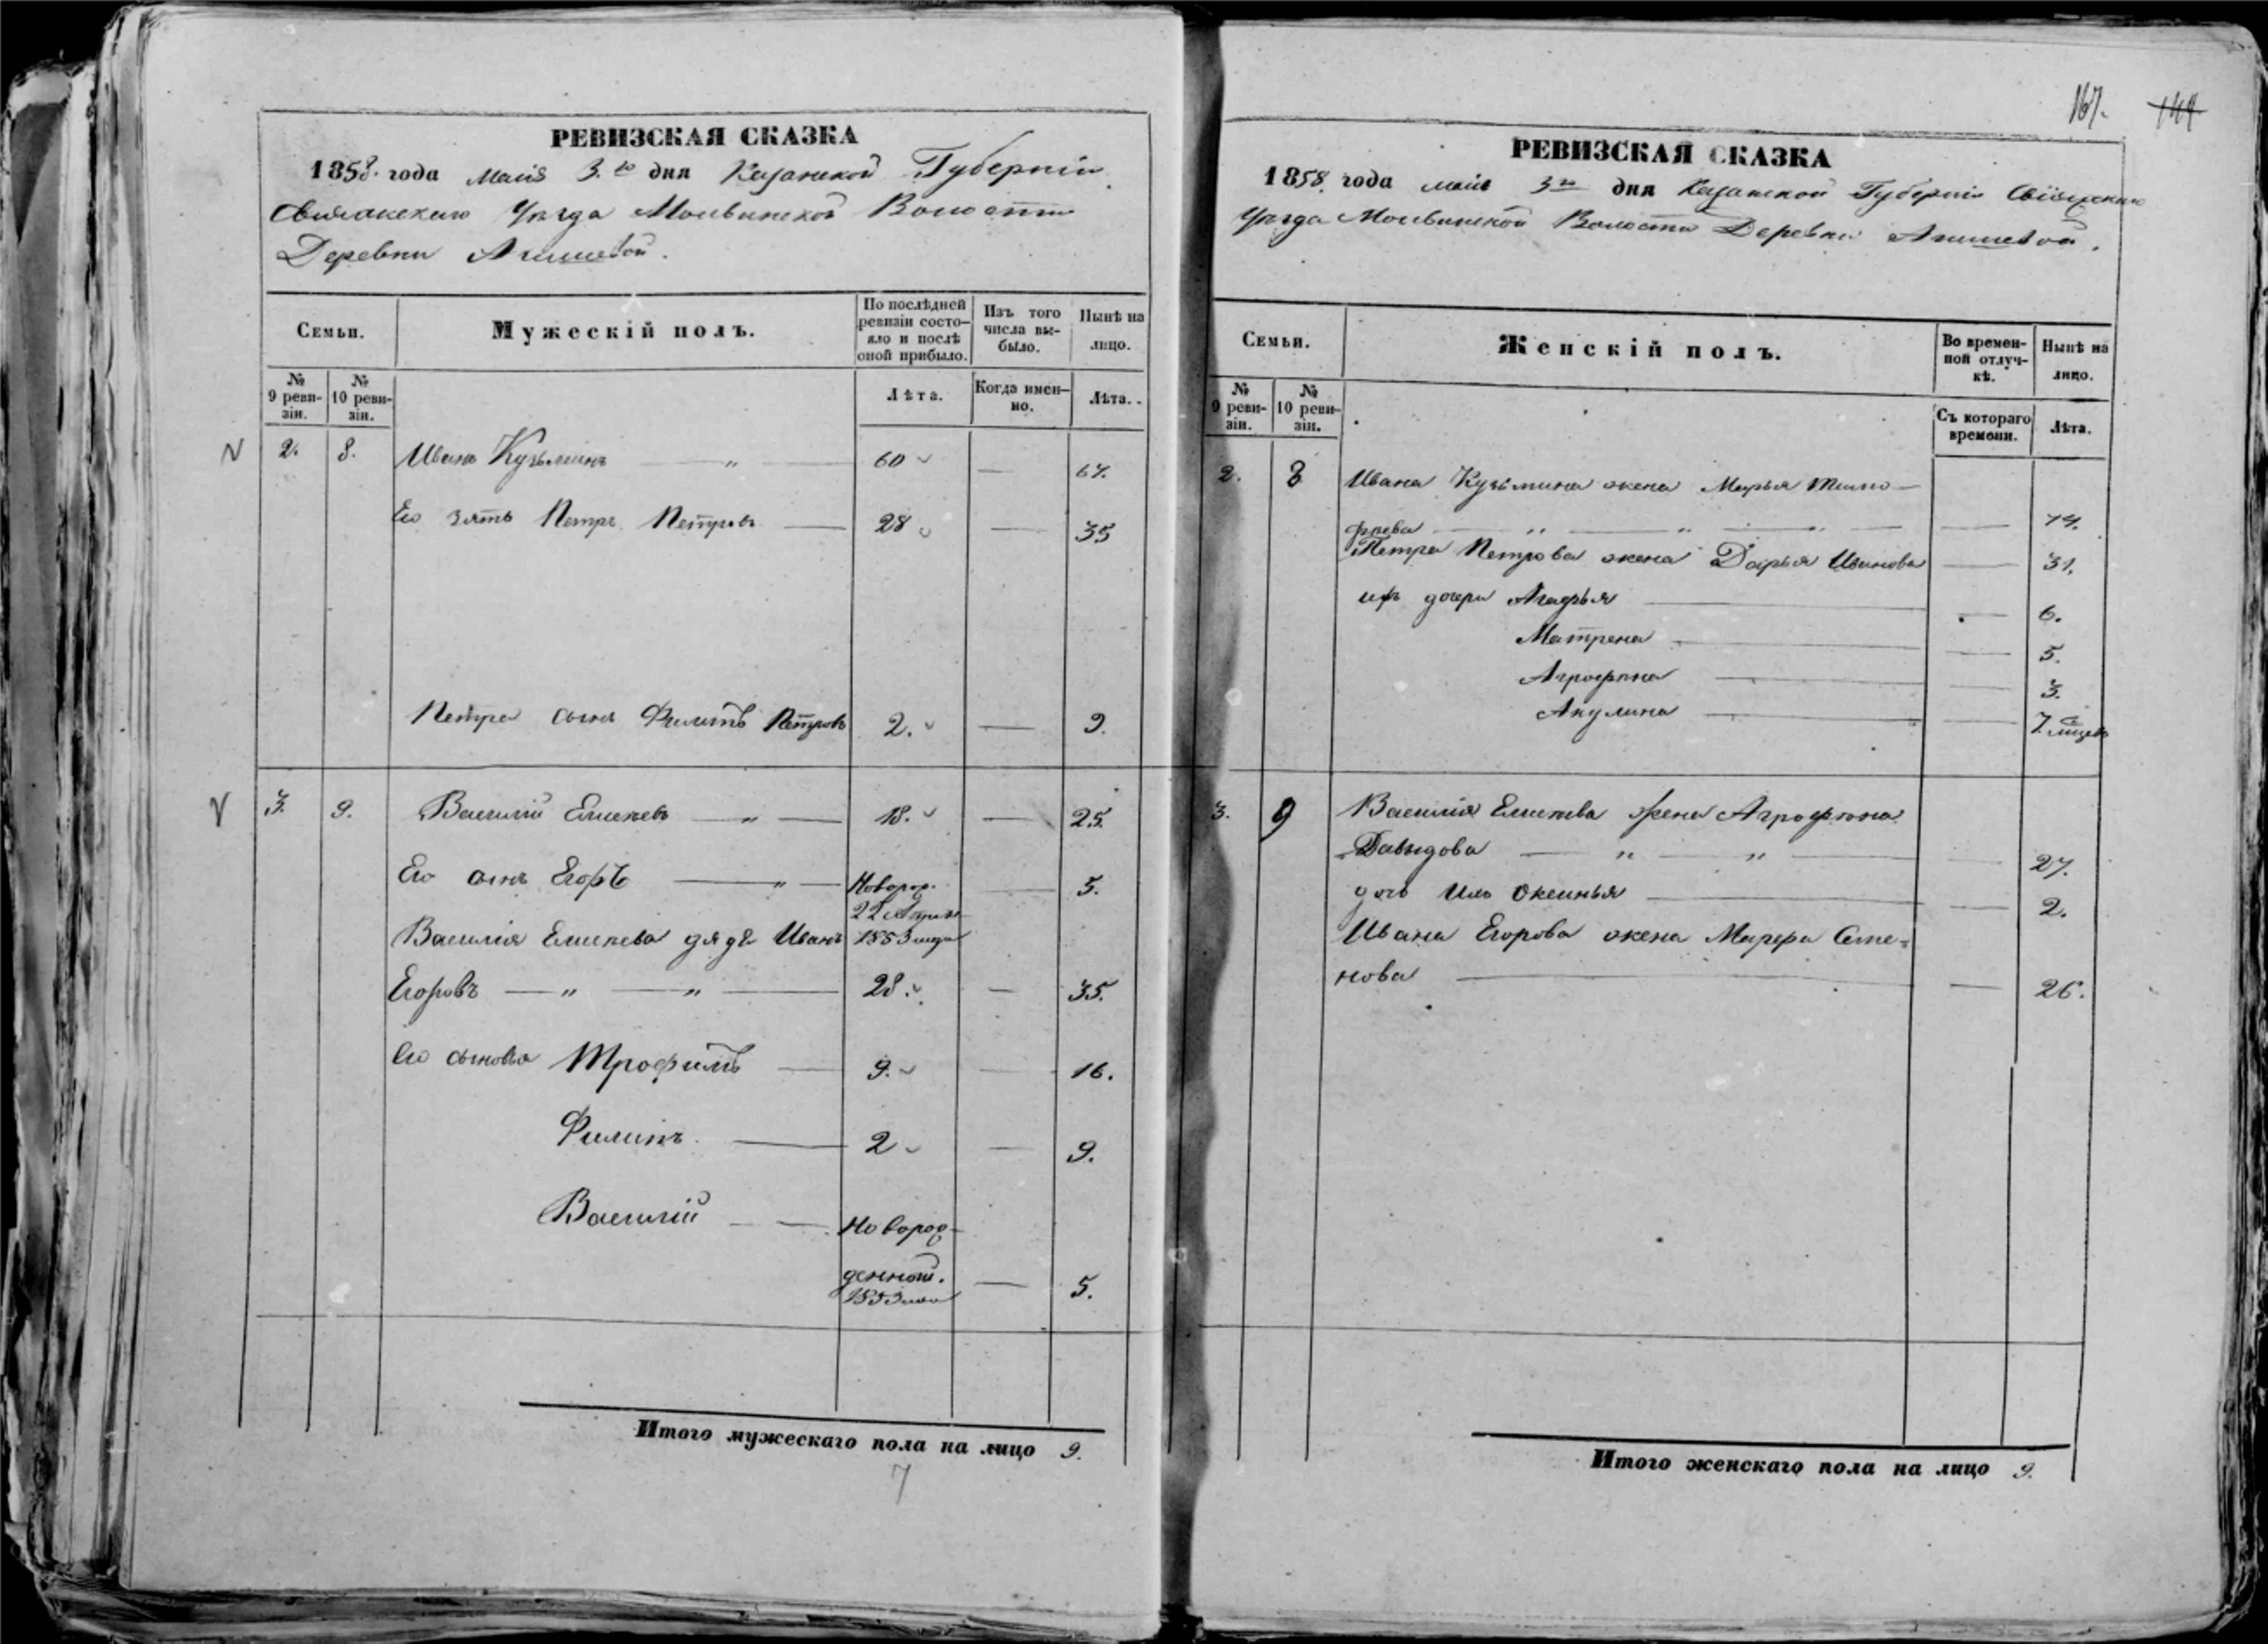 РЕВИЗСКАЯ СКАЗКА
1858. года Маія 3.го дня Казанской Губерніи
Свіяжскаго Уѣзда Молвинской Волости
Деревни Агишевой.
Семьи.
Мужескій полъ.
По послѣдней ревизіи состояло и послѣ оной прибыло.
Изъ того числа выбыло.
Нынѣ на лицо.
№ 9 ревизіи.
№ 10 ревизіи.
Лѣта.
Когда именно.
Лѣта.
2. 8. Иванъ Кузьминъ — „ — 60 — 67.
Его зять Петръ Петровъ — 28 — 35
Петра сынъ Филипъ Петровъ 2. — 9.
3. 9. Василій Елисеевъ — „ — 18. — 25.
Его сынъ Егоръ — „ — Новорож. — 5.
22 Апрѣля
Василія Елисеева дядя Иванъ 1853 года
Егоровъ — „ — „ — 28. — 35.
Его сыновья Трофимъ — 9. — 16.
Филипъ — 2 — 9.
Василій — Новорож-
денной. — 5.
1853 года
Итого мужескаго пола на лицо 9.
7
167. 144
РЕВИЗСКАЯ СКАЗКА
1858. года маія 3го дня Казанской Губерніи Свіяжскаго
Уѣзда Молвинской Волости Деревни Агишевой.
Семьи.
Женскій полъ.
Во временной отлучкѣ.
Нынѣ на лицо.
№ 9 ревизіи.
№ 10 ревизіи.
Съ котораго времени.
Лѣта.
2. 8 Ивана Кузьмина жена Марья Тимо-
фѣева — „ — „ — „ — 74.
Петра Петрова жена Дарья Иванова — 31.
ихъ дочери Агафья — 6.
Матрена — 5.
Агрофѣна — 3.
Акулина — 7. мѣсяцевъ
3. 9 Василія Елисѣева жена Агрофѣна
Давыдова — „ — „ — 27.
дочь ихъ Оксинья — 2.
Ивана Егорова жена Марфа Семе-
нова — 26.
Итого женскаго пола на лицо 9.